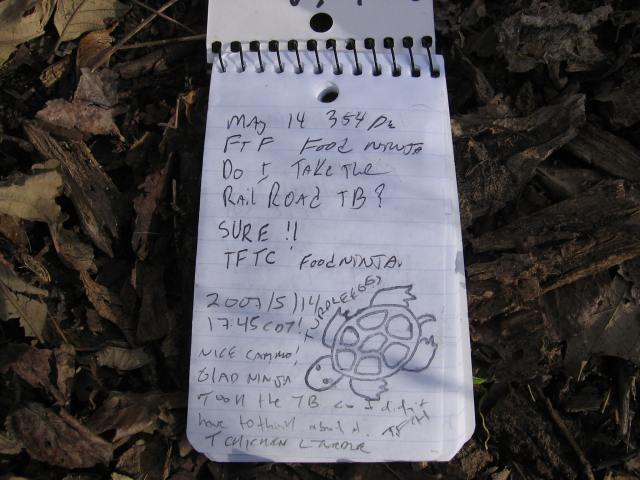 MAY 14 3:54 PM
FTF FOOD NINJA
DO I TAKE THE
RAIL ROAD TB?
SURE !!
TFTC FOOD NINJA.
2007/5/14
17:45 CDT!
NICE CAMMO!
GLAD NINJA
TOOK the TB so I didn't
have to think about it. TFTH